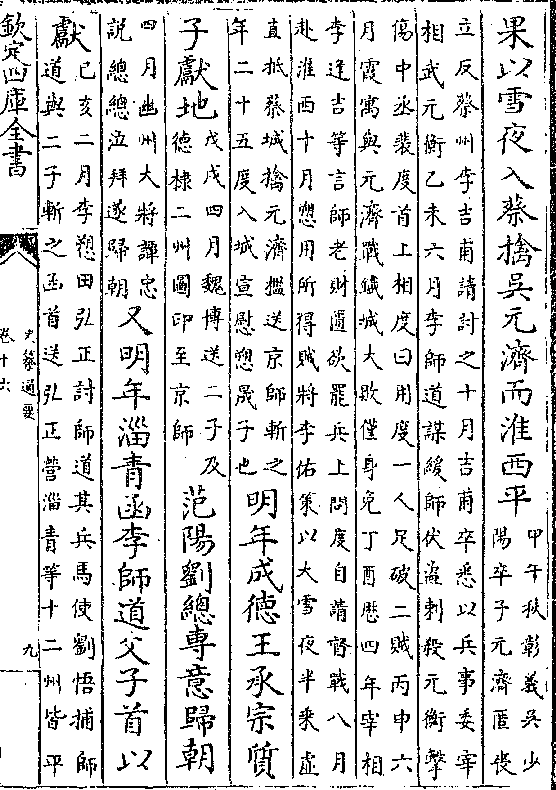 果以雪夜入蔡擒吳元濟而淮西平
甲午秋彰義吳少
陽卒子元濟匿喪
立反蔡州李吉甫請討之十月吉甫卒悉以兵事委宰
相武元衡乙未六月李師道謀緩師伏盜刺殺元衡擊
傷中丞裴度首上相度曰用度一人足破二賊丙申六
月霞寓與元濟戰鐵城大敗僅身免丁酉歷四年宰相
李逢吉等言師老財匱欲罷兵上問度自請督戰八月
赴淮西十月愬用所得賊將李佑策以大雪夜半乘虛
直抵蔡城擒元濟檻送京師斬之
年二十五度入城宣慰愬晟子也
明年成德王承宗質
子獻地
戊戌四月魏博送二子及
德棣二州圖印至京師
范陽劉總專意歸朝
四月幽州大將譚忠
説總總泣拜遂歸朝
又明年淄青函李師道父子首以
獻
己亥二月李愬田弘正討師道其兵馬使劉悟捕師
道與二子斬之函首送弘正營淄青等十二州皆平
欽定四庫全書
史纂通要
卷十六
九